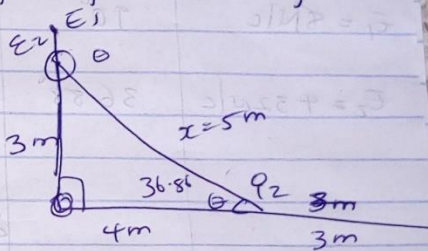 E₁
E₂ θ
x = 5m
3m
36.86 θ q₂ 3m
4m 3m